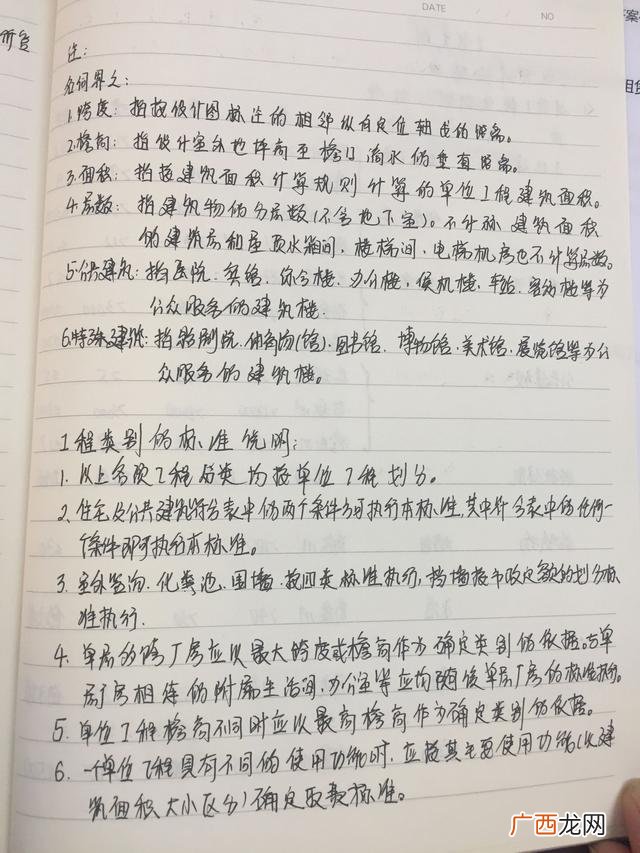 所包
DATE
NO
答案
租赁
注:
名词界定:
1.跨度: 指按设计图标注的相邻纵向定位轴线的距离。
2.檐高: 指设计室外地坪高至檐口滴水的垂直距离。
3.面积: 指按建筑面积计算规则计算的单位工程建筑面积。
4.层数: 指建筑物的分层数(不含地下室)。不计算建筑面积
的建筑层和屋顶水箱间,楼梯间,电梯机房也不计算层数。
5.公共建筑: 指医院、宾馆、综合楼、办公楼、候机楼、车站、客运楼等为
公众服务的建筑楼.
6.特殊建筑: 指影剧院、体育场(馆)、图书馆、博物馆、美术馆、展览馆等为公
众服务的建筑楼。
工程类别的标准说明:
1. 以上各项工程分类均按单位工程划分。
2. 住宅及公共建筑符合表中的两个条件方可执行本标准,其中符合表中的任何一
个条件即可执行本标准。
3. 室外管沟、化粪池、围墙、按四类标准执行,挡墙按市政定额的划分标
准执行.
4. 单层多跨厂房应以最大跨度或檐高作为确定类别的依据。与单
层厂房相连的附属生活间,办公室等应均随该单层厂房的标准执行。
5. 单位工程檐高不同时应以最高檐高作为确定类别的依据。
6. 一个单位工程具有不同的使用功能时,应按其主要使用功能(以建
筑面积大小区分)确定取费标准。
广西龙网